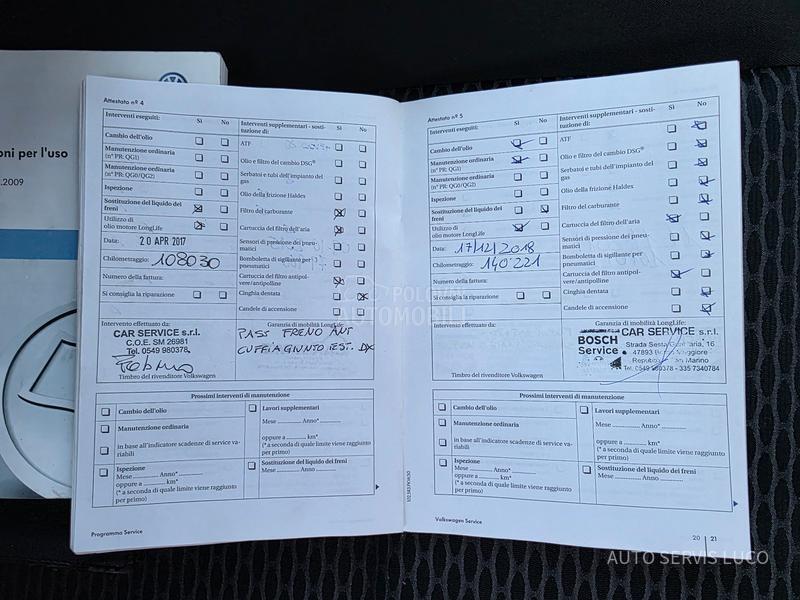 oni per l'uso
.2009
Attestato nº 4
Interventi eseguiti:
Sì
No
Interventi supplementari - sosti-
tuzione di:
Sì
No
Cambio dell'olio
ATF
Manutenzione ordinaria
(nº PR: QG1)
Olio e filtro del cambio DSG®
Manutenzione ordinaria
(nº PR: QG0/QG2)
Serbatoi e tubi dell'impianto del
gas
Ispezione
Olio della frizione Haldex
Sostituzione del liquido dei
freni
Filtro del carburante
Utilizzo di
olio motore LongLife
Cartuccia del filtro dell'aria
Data:
20 APR 2017
Sensori di pressione dei pneu-
matici
Chilometraggio:
108030
Bomboletta di sigillante per
pneumatici
Numero della fattura:
Cartuccia del filtro antipol-
vere/antipolline
Si consiglia la riparazione
Cinghia dentata
Candele di accensione
Intervento effettuato da:
Garanzia di mobilità LongLife:
CAR SERVICE s.r.l.
C.O.E. SM 26981
Tel. 0549 980378
PASS FRENO ANT
CUFFIA GIUNTO EST. DX
Timbro del rivenditore Volkswagen
Prossimi interventi di manutenzione
Cambio dell'olio
Lavori supplementari
Manutenzione ordinaria
Mese Anno*
in base all'indicatore scadenze di service va-
riabili
oppure a km*
(* a seconda di quale limite viene raggiunto
per primo)
Ispezione
Mese Anno*
oppure a km*
(* a seconda di quale limite viene raggiunto
per primo)
Sostituzione del liquido dei freni
Mese Anno
Programma Service
Attestato nº 5
Interventi eseguiti:
Sì
No
Interventi supplementari - sosti-
tuzione di:
Sì
No
Cambio dell'olio
ATF
Manutenzione ordinaria
(nº PR: QG1)
Olio e filtro del cambio DSG®
Manutenzione ordinaria
(nº PR: QG0/QG2)
Serbatoi e tubi dell'impianto del
gas
Ispezione
Olio della frizione Haldex
Sostituzione del liquido dei
freni
Filtro del carburante
Utilizzo di
olio motore LongLife
Cartuccia del filtro dell'aria
Data:
17/12/2018
Sensori di pressione dei pneu-
matici
Chilometraggio:
140221
Bomboletta di sigillante per
pneumatici
Numero della fattura:
Cartuccia del filtro antipol-
vere/antipolline
Si consiglia la riparazione
Cinghia dentata
Candele di accensione
Intervento effettuato da:
Garanzia di mobilità LongLife:
BOSCH
Service
CAR SERVICE s.r.l.
Strada Sesta Gualdaria, 16
47893 Borgo Maggiore
Repubblica San Marino
Tel. 0549 980378 - 335 7340784
Timbro del rivenditore Volkswagen
Prossimi interventi di manutenzione
Cambio dell'olio
Lavori supplementari
Manutenzione ordinaria
Mese Anno*
in base all'indicatore scadenze di service va-
riabili
oppure a km*
(* a seconda di quale limite viene raggiunto
per primo)
Ispezione
Mese Anno*
oppure a km*
(* a seconda di quale limite viene raggiunto
per primo)
Sostituzione del liquido dei freni
Mese Anno
Volkswagen Service
20
21
POLOVNI
AUTOMOBILI
AUTO SERVIS LUCO